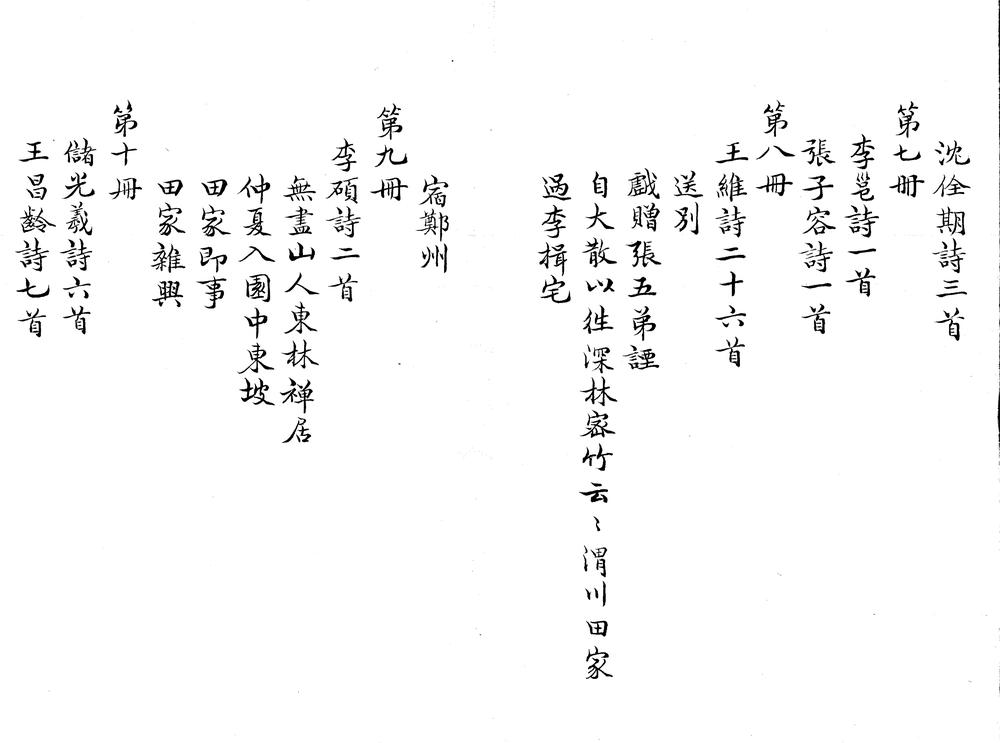 沈佺期詩三首
第七冊
李邕詩一首
張子容詩一首
第八冊
王維詩二十六首
送別
戲贈張五弟諲
自大散以徃深林宻竹云〻渭川田家
過李揖宅
宿鄭州
第九冊
李碩詩二首
無盡山人東林禅居
仲夏入園中東坡
田家即事
田家雜興
第十冊
儲光羲詩六首
王昌齡詩七首